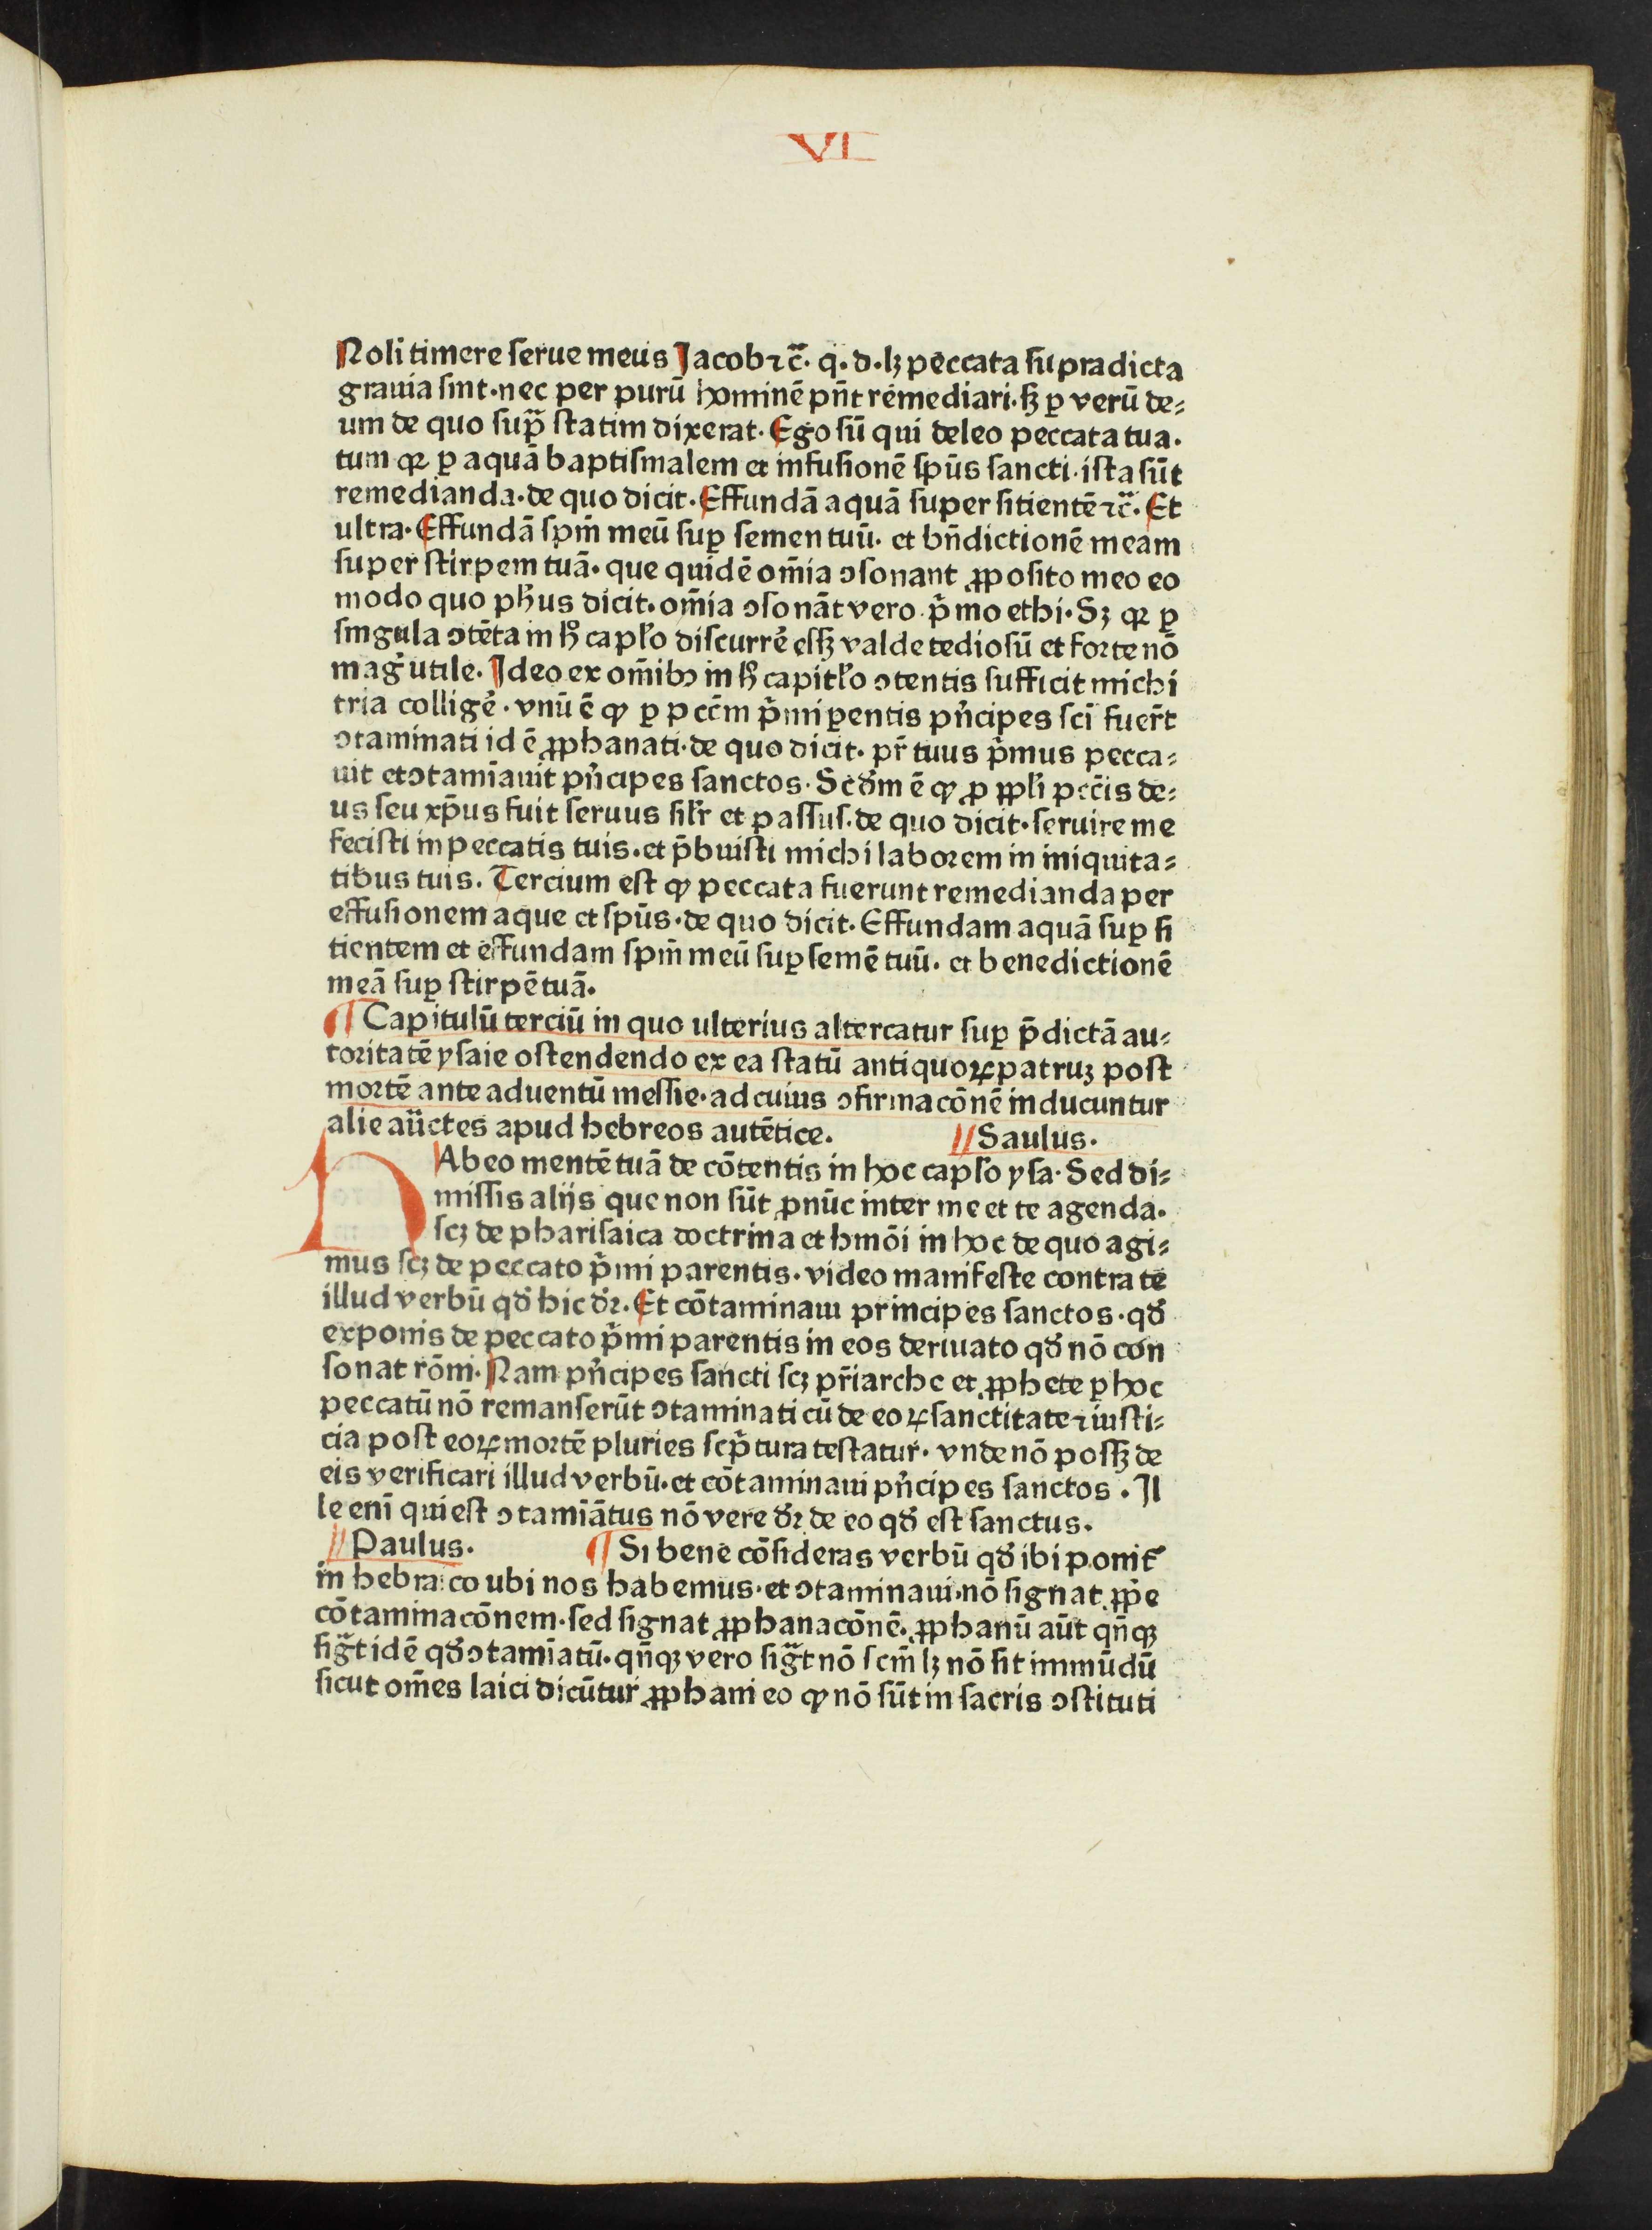 VI
Noli timere ſerue meus Jacob ⁊c̃. q. d. lꝫ peccata ſupradicta
grauia ſint. nec per purū hominē pn̄t remediari. ſꝫ ꝑ verū de⸗
um de quo ſup̃ ſtatim dixerat. Ego ſū qui deleo peccata tua.
tum qꝛ ꝑ aquā baptiſmalem et infuſionē ſpūs ſancti. iſta ſūt
remedianda. de quo dicit. Effundā aquā ſuper ſitientē ⁊c̃. Et
ultra. Effundā ſpm̄ meū ſuꝑ ſemen tuū. et bn̄dictionē meam
ſuper ſtirpem tuā. que quidē om̄ia ↄſonant ꝓpoſito meo eo
modo quo ph̄us dicit. om̄ia ↄſonāt vero. p̄mo ethi. Sꝫ qꝛ ꝑ
ſingula ↄtēta in h̊ capĺo diſcurrẽ eſſꝫ valde tedioſū et forte nō
mag̕ utile. Ideo ex om̄ibꝰ in h̊ capitĺo ↄtentis ſufficit michi
tria colligẽ. vnū ē ꝙ ꝑ pccm̄ p̄mi ꝑentis pn̕cipes ſcī fuer̄t
ↄtaminati id ē ꝓphanati. de quo dicit. pr̄ tuus p̄mus pecca⸗
uit et ↄtamīauit pn̕cipes ſanctos. Scd̕m ē ꝙ ꝓ ppĺi pcc̄is de⸗
us ſeu xp̄us fuit ſeruus ſiĺr et paſſuſ. de quo dicit. ſeruire me
feciſti in peccatis tuis. et p̄buiſti michi laborem in iniquita⸗
tibus tuis. Tercium eſt ꝙ peccata fuerunt remedianda per
effuſionem aque et ſpūs. de quo dicit. Effundam aquā ſuꝑ ſi
tientem et effundam ſpm̄ meū ſuꝑ ſemē tuū. et benedictionē
meā ſuꝑ ſtirpē tuā.
¶ Capitulū terciū in quo ulterius altercatur ſuꝑ p̄dictā au⸗
toritatē yſaie oſtendendo ex ea ſtatū antiquoꝝ patruꝫ poſt
mortē ante aduentū meſſie. ad cuius ↄfirmacōnē inducuntur
alie aūctes apud hebreos autētice. // Saulus.
HAbeo mentē tuā de cōtentis in hoc capĺo yſa. Sed di⸗
miſſis alijs que non ſūt ꝓ nūc inter me et te agenda.
ſcꝫ de phariſaica doctrina et hmōi in hoc de quo agi⸗
mus ſcꝫ de peccato p̄mi parentis. video manifeſte contra te
illud verbū qd̕ hic d̕ꝛ. Et cōtaminaui principes ſanctos. qd̕
exponis de peccato p̄mi parentis in eos deriuato qd̕ nō con
ſonat rōni. Nam pn̕cipes ſancti ſcꝫ pr̄iarche et ꝓphete ꝑ hoc
peccatū nō remanſerūt ↄtaminati cū de eoꝝ ſanctitate ⁊ iuſti⸗
cia poſt eoꝝ mortē pluries ſcp̄tura teſtatur. vnde nō poſſꝫ de
eis verificari illud verbū. et cōtaminaui pn̕cipes ſanctos. Il
le enī qui eſt ↄtamīātus nō vere d̕ꝛ de eo qd̕ eſt ſanctus.
// Paulus. ¶ Si bene cōſideras verbū qd̕ ibi ponit᷑
in hebraico ubi nos habemus. et ↄtaminaui. nō ſignat ꝓp̄e
cōtaminacōnem. ſed ſignat ꝓphanacōnē. ꝓphanū aūt qn̄qꝫ
ſig̃t idē qd̕ ↄtamīatū. qn̄qꝫ vero ſig̃t nō ſcm̄ lꝫ nō ſit immūdū
ſicut om̄es laici dicūtur ꝓphani eo ꝙ nō ſūt in ſacris ↄſtituti